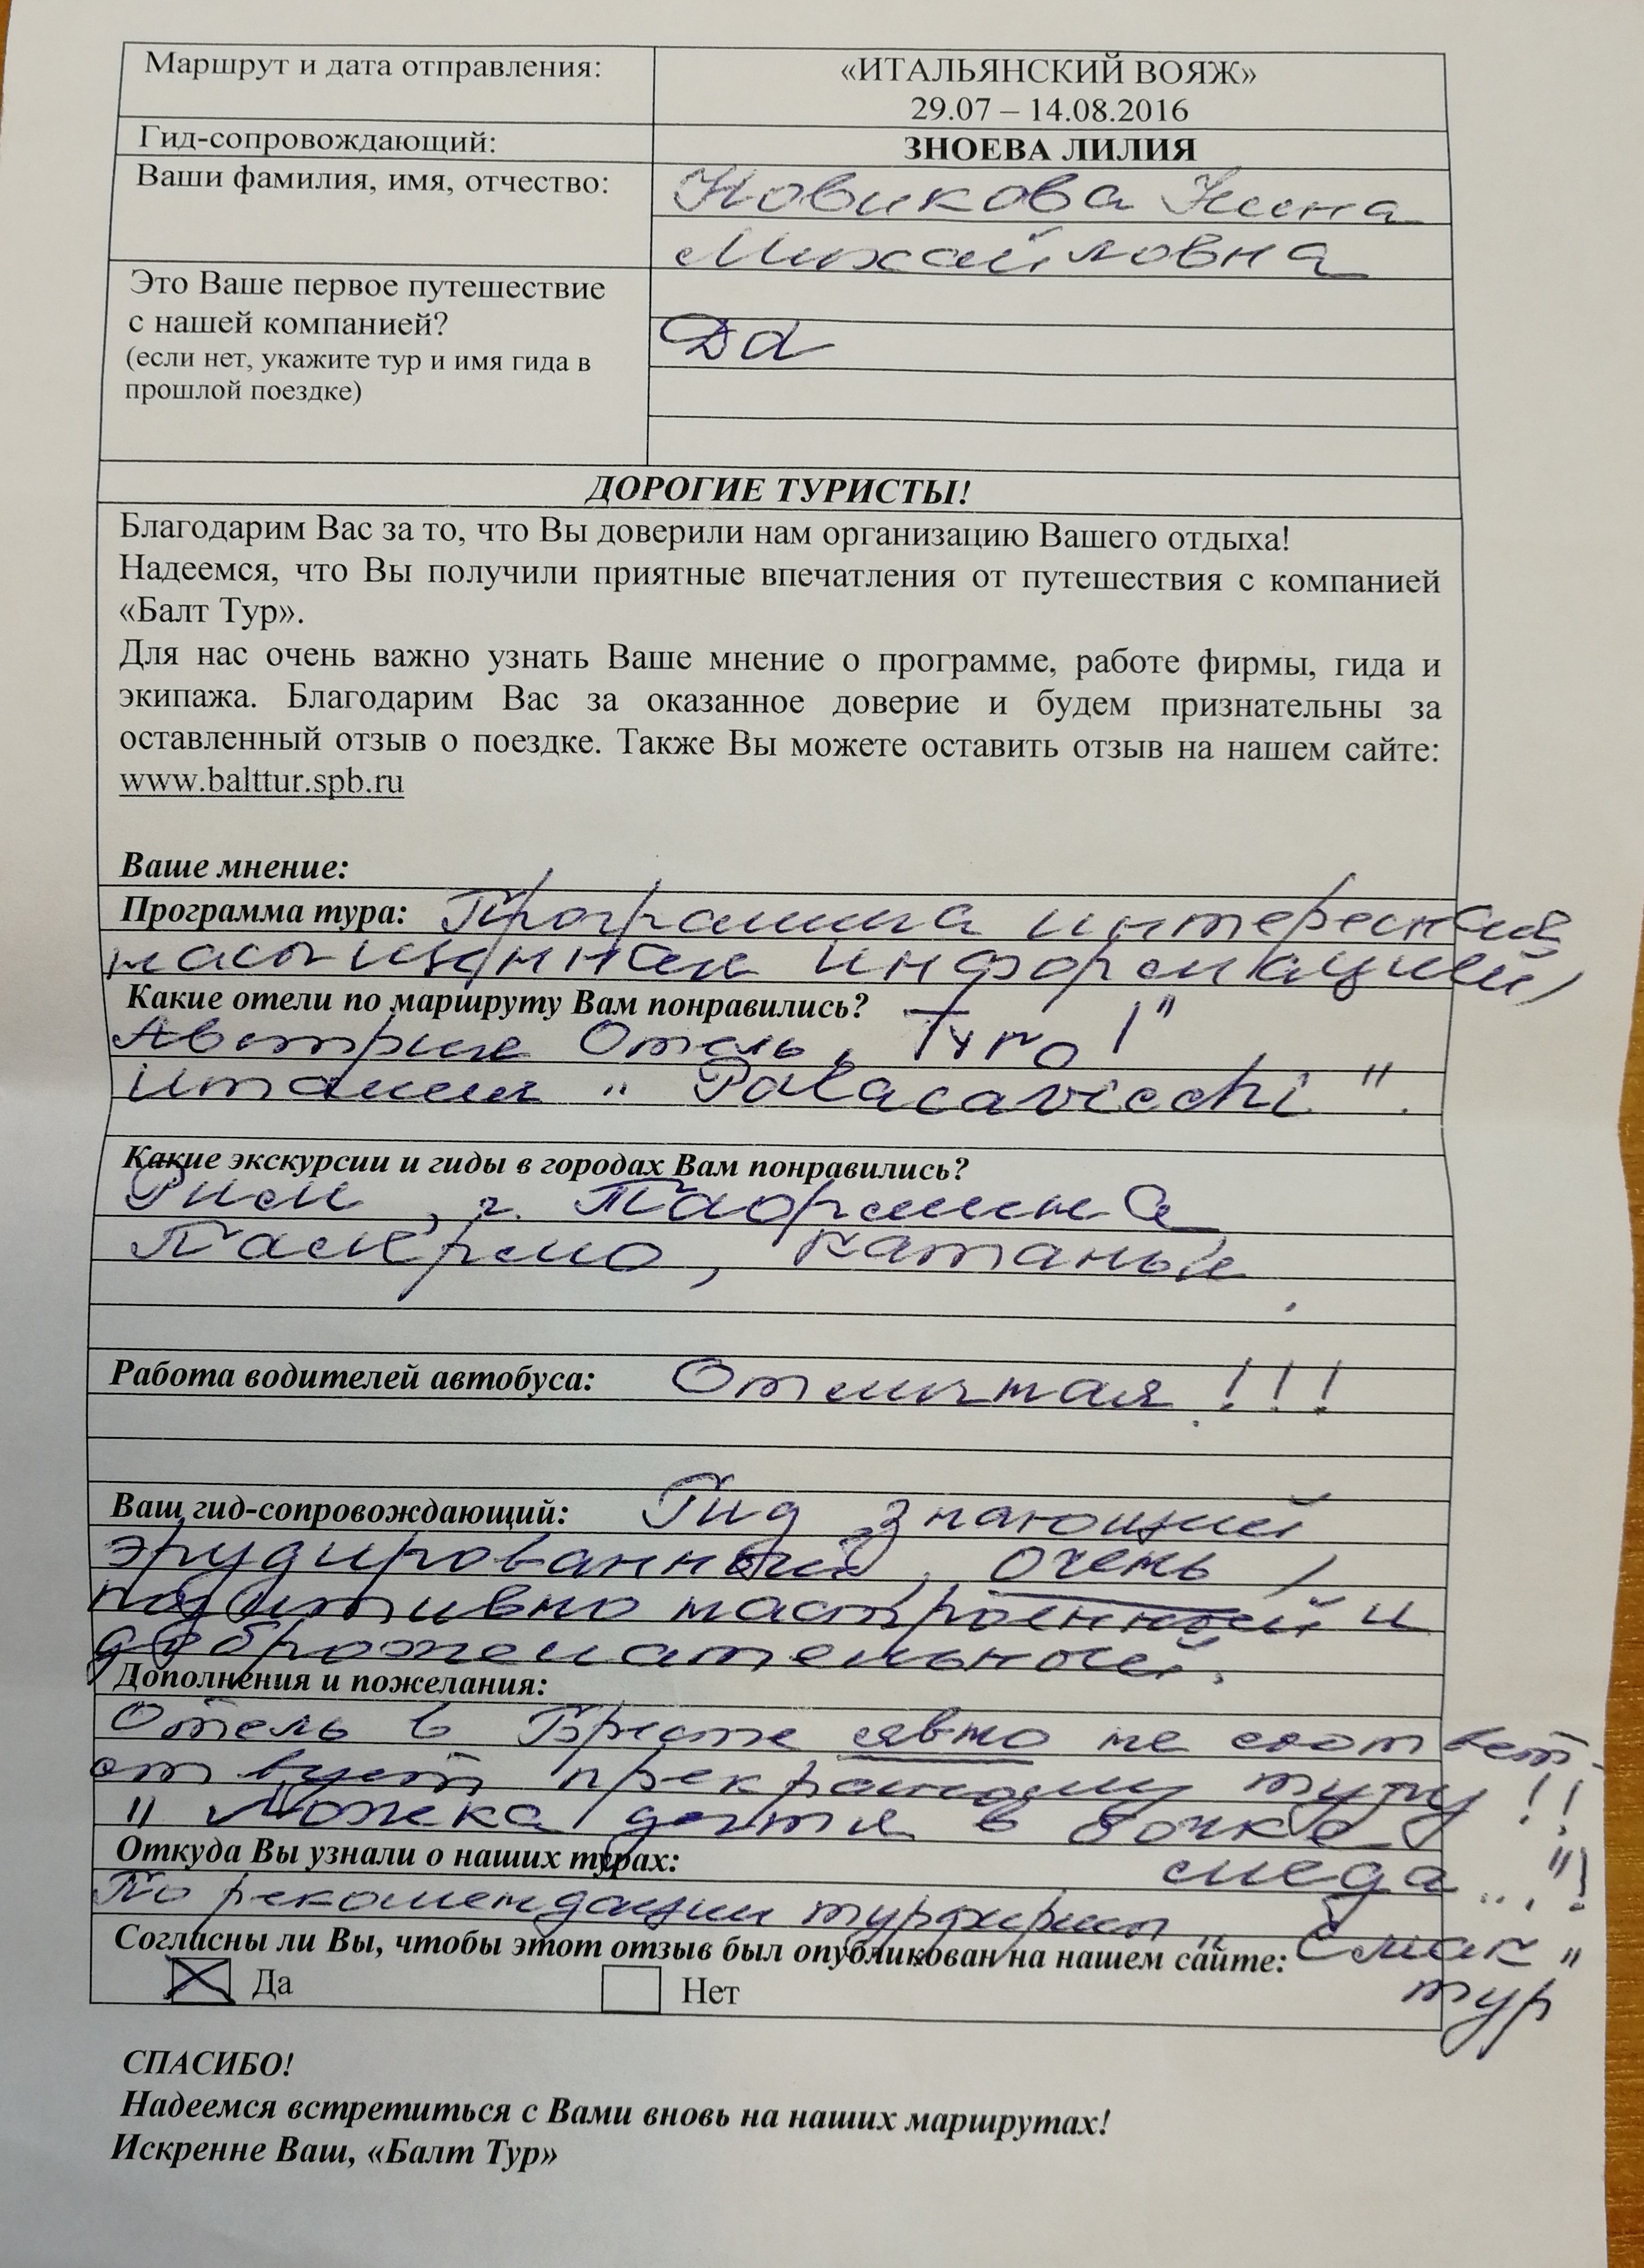 Маршрут и дата отправления:
«ИТАЛЬЯНСКИЙ ВОЯЖ»
29.07 – 14.08.2016
Гид-сопровождающий:
ЗНОЕВА ЛИЛИЯ
Ваши фамилия, имя, отчество:
Новикова Нина
Михайловна
Это Ваше первое путешествие
с нашей компанией?
(если нет, укажите тур и имя гида в
прошлой поездке)
Да
ДОРОГИЕ ТУРИСТЫ!
Благодарим Вас за то, что Вы доверили нам организацию Вашего отдыха!
Надеемся, что Вы получили приятные впечатления от путешествия с компанией
«Балт Тур».
Для нас очень важно узнать Ваше мнение о программе, работе фирмы, гида и
экипажа. Благодарим Вас за оказанное доверие и будем признательны за
оставленный отзыв о поездке. Также Вы можете оставить отзыв на нашем сайте:
www.balttur.spb.ru
Ваше мнение:
Программа тура: Программа интересная
насыщенная информацией,
Какие отели по маршруту Вам понравились?
Австрия Отель „
Италия " Palacavicchi ".
Какие экскурсии и гиды в городах Вам понравились?
Рим, г. Таормина,
Палермо, Катанья.
Работа водителей автобуса: Отличная !!!
Ваш гид-сопровождающий: Гид знающий
эрудированный, очень
позитивно настроенный и
доброжелательный.
Дополнения и пожелания:
Отель в Бресте явно не соответ-
ствует прекрасному туру !!
" Ложка дегтя в бочке
меда ..."!
Откуда Вы узнали о наших турах:
По рекомендации турфирм „
тур
Согласны ли Вы, чтобы этот отзыв был опубликован на нашем сайте:
Да Нет
СПАСИБО!
Надеемся встретиться с Вами вновь на наших маршрутах!
Искренне Ваш, «Балт Тур»